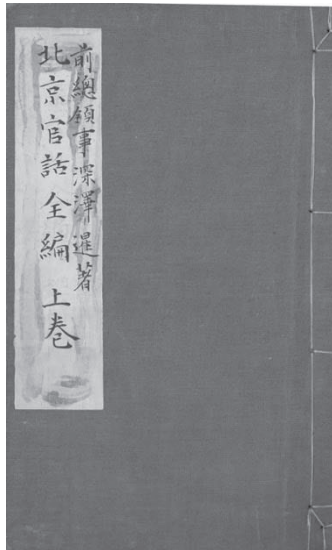 前總領事深澤暹著
北京官話全編 上巻